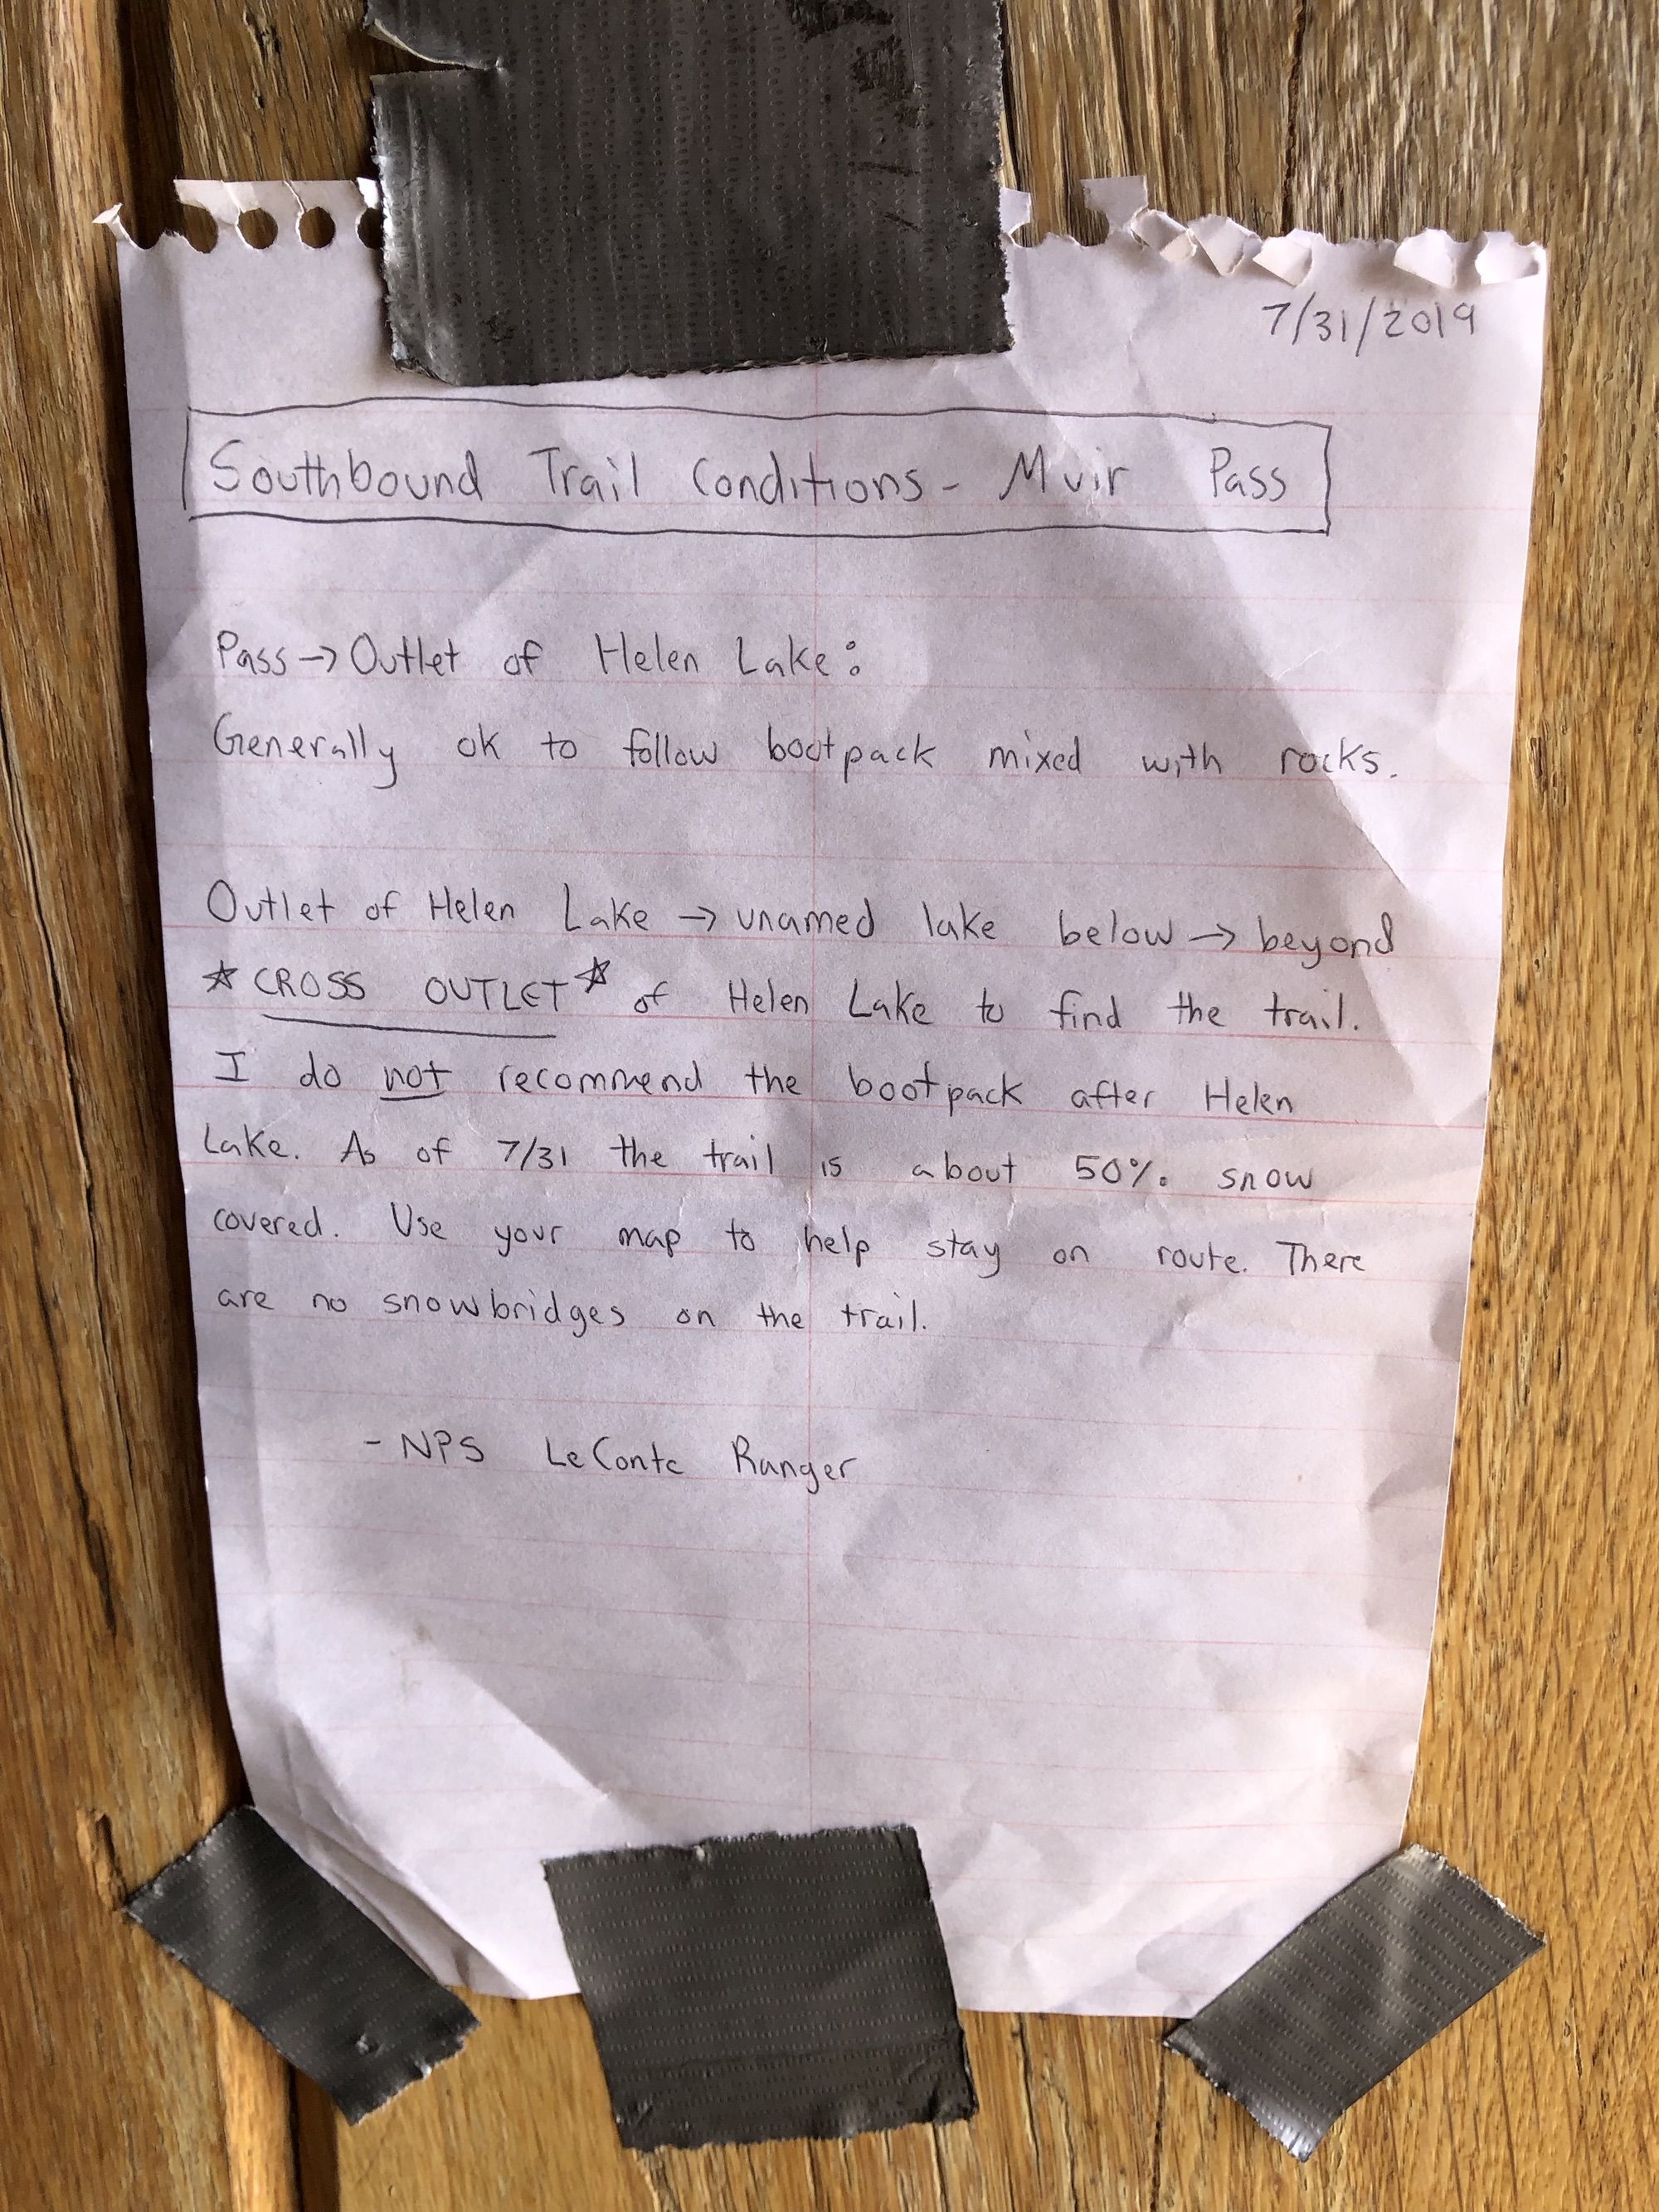 7/31/2019
Southbound Trail Conditions - Muir Pass
Pass → Outlet of Helen Lake:
Generally ok to follow bootpack mixed with rocks.
Outlet of Helen Lake → unamed lake below → beyond
☆ CROSS OUTLET ☆ of Helen Lake to find the trail.
I do not recommend the bootpack after Helen
Lake. As of 7/31 the trail is about 50% snow
covered. Use your map to help stay on route. There
are no snowbridges on the trail.
- NPS LeConte Ranger